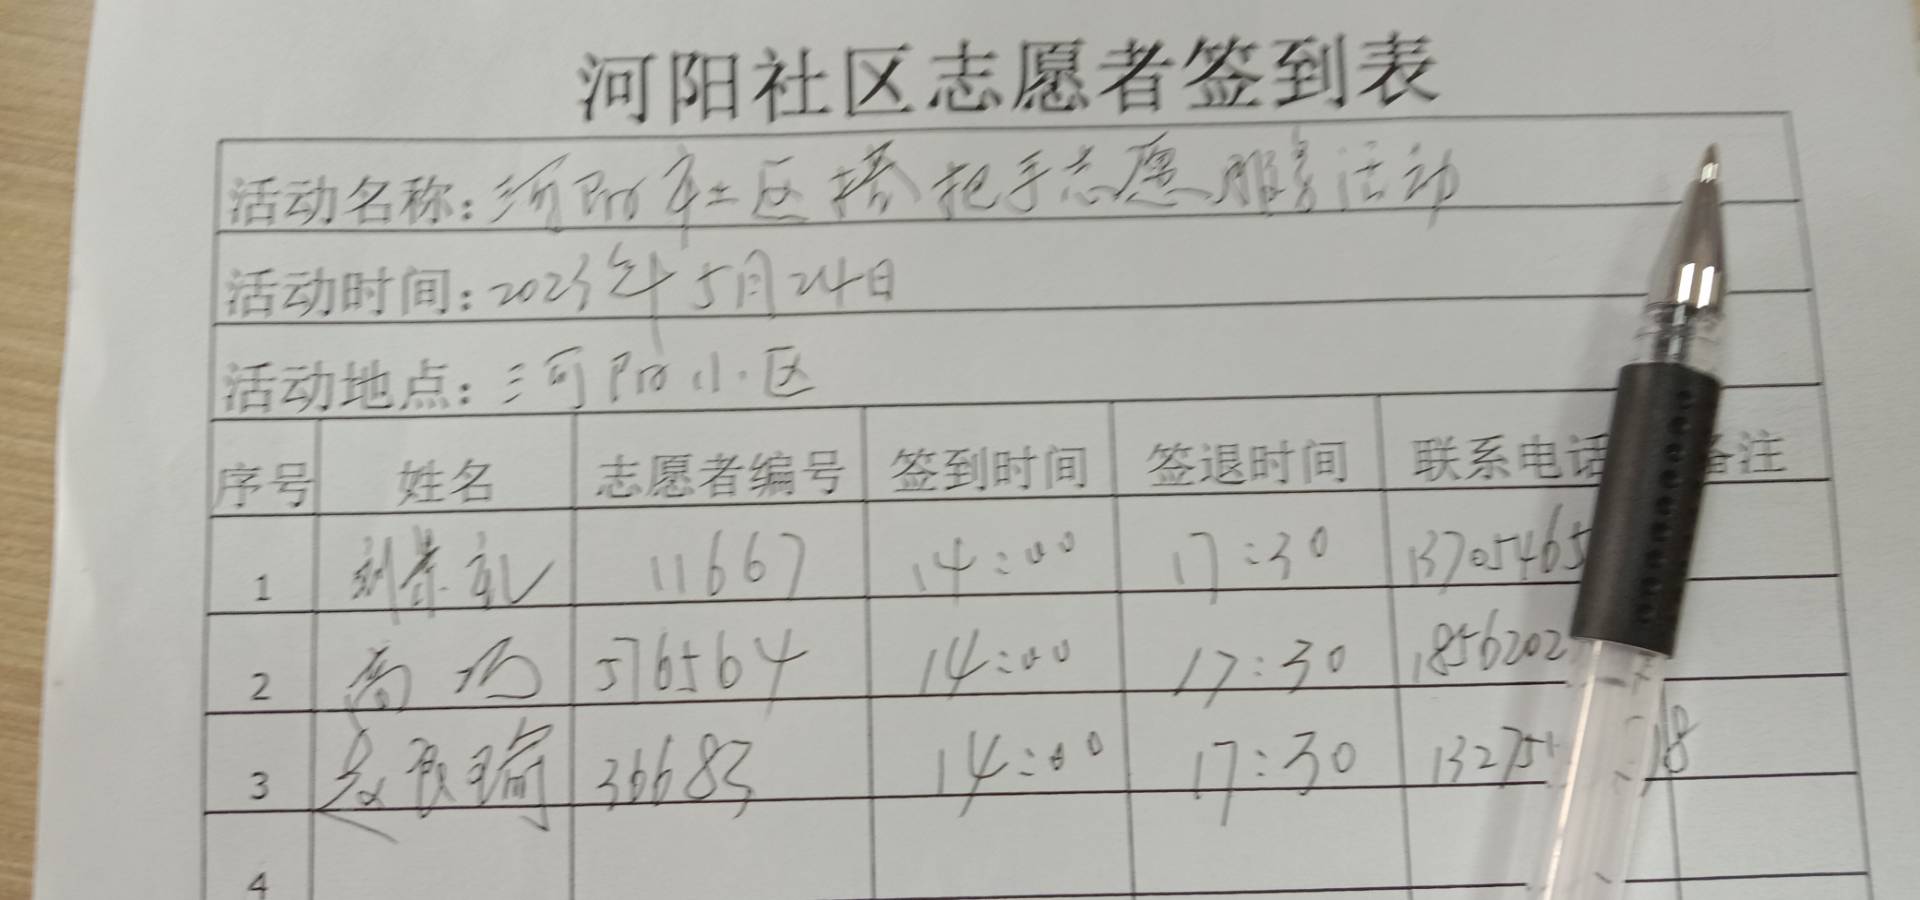 河阳社区志愿者签到表
活动名称: 河阳社区搭把手志愿服务活动
活动时间: 2023年5月24日
活动地点: 河阳小区
序号 姓名 志愿者编号 签到时间 签退时间 联系电话 备注
1 刘景礼 11667 14:00 17:30 13705465
2 高 576564 14:00 17:30 1856202
3 14:00 17:30 13275 18
4